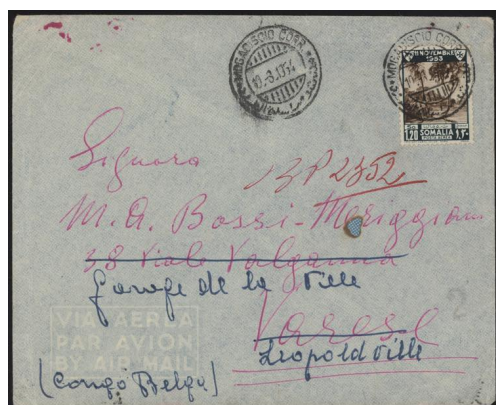 MOGADISCIO CORR.
10.3.1954
MOGADISCIO CORR.
11 NOVEMBRE
1953
So. 1,20 SOMALIA ١,٢٠
POSTA AEREA
Signora
BP 2852
M. A. Bossi-Meriggiani
38 Viale Valganna
Garage de la Ville
Varese
Leopoldville
(Congo Belga)
VIA AEREA
PAR AVION
BY AIR MAIL
2